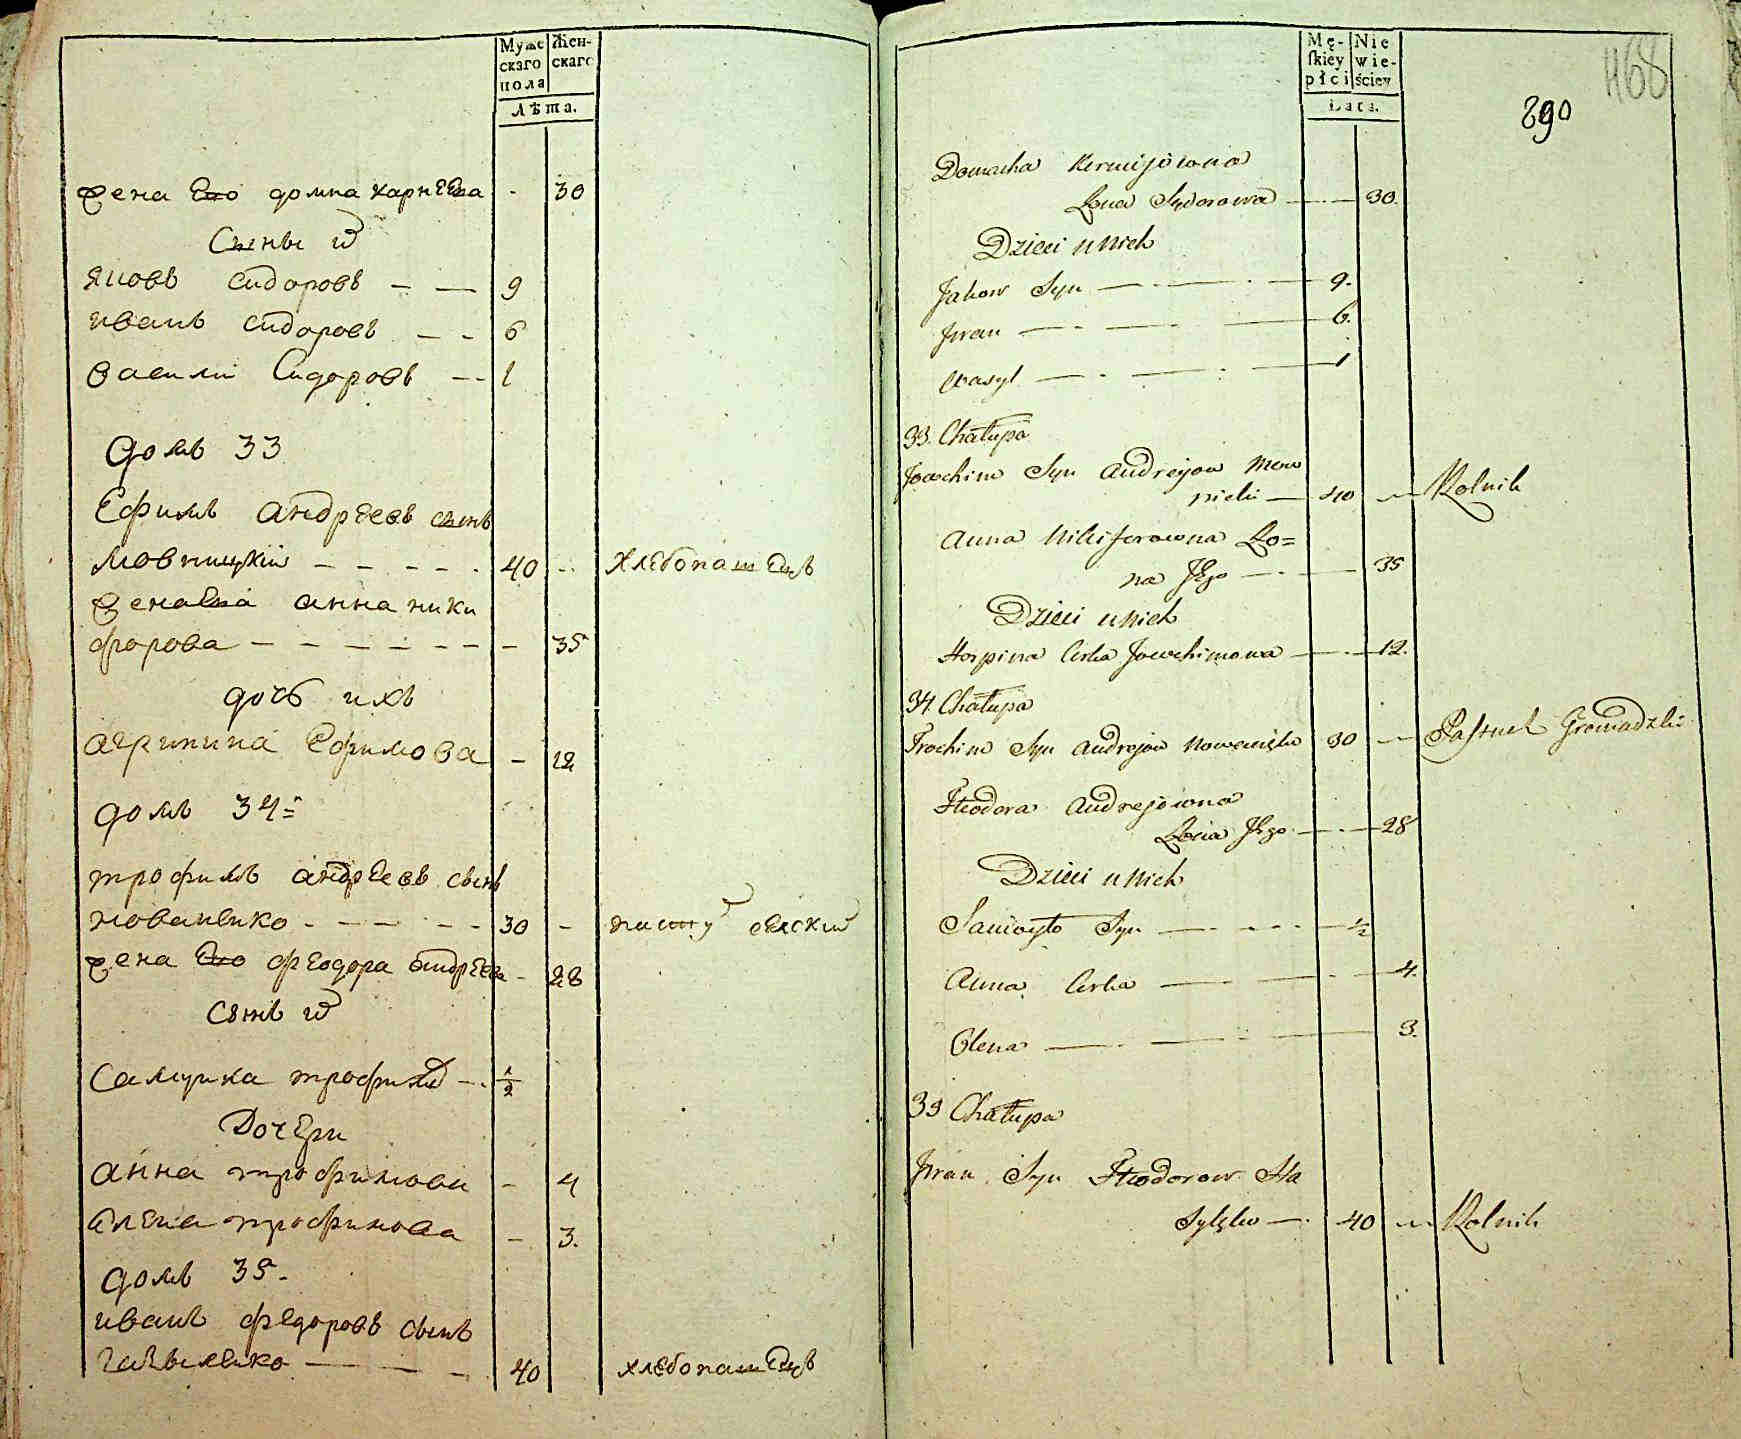 Муже
скаго
пола
Жен-
скаго
Лѣта.
жена Его домна карнеева - 30
Сыны их
яковъ сидоровъ - — 9
иванъ сидоровъ — - 6
васили Сидоровъ — - 1
домъ 33
Ефимъ андреевъ сынъ
- - - - - 40 - хлебопашецъ
жена его анна ники
форова - - - - - - - 35
дочь ихъ
агрипина Ефимова - 12
домъ 34
трофимъ андреевъ сынъ
новаченко - - - - - 30 - пастухъ селский
жена Его феодора андреева - 28
Сынъ их
Самуила трофимовъ - ½
Дочери
анна трофимова - 4
Олена трофимова - 3.
домъ 35.
иванъ федоровъ сынъ
— — - 40 хлебопашецъ
Mę-
skiey
płci
Nie
wie-
ściey
Lata.
468
890
Domacha
Żona Sydorowa — 30.
Dzieci u Nich
Jakow Syn — 9.
Jwan — 6.
Wasyl — 1
33. Chałupa
Joachim Syn Andreiow Mow
nicki — 40 — Rolnik
Anna Nikiforowna Żo=
na Jego — 35
Dzieci u Nich
Horpina Corka Joachimowa — 12.
34 Chałupa
Trochim Syn Andrejow 30 — Pastuch Gromadzki
Fteodora Andrejowna
Żona Jego — 28
Dzieci u Nich
Samoyło Syn — ½
Anna Corka — 4.
Olena — 3.
35 Chałupa
Jwan Syn Fteodorow Ha
— 40 — Rolnik